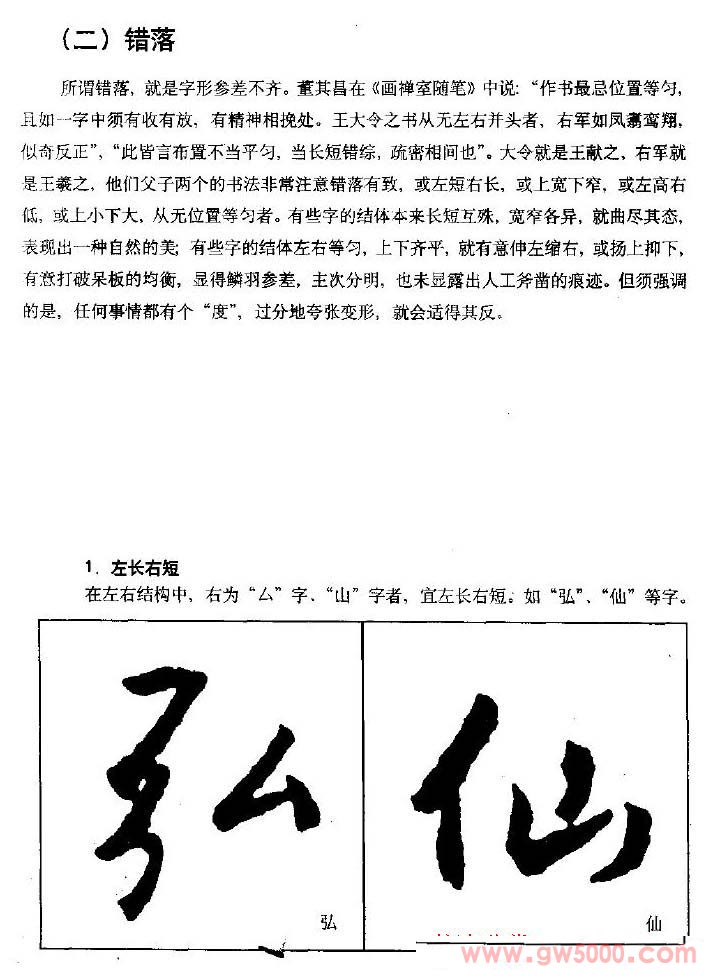 （二）错落
所谓错落，就是字形参差不齐。董其昌在《画禅室随笔》中说：“作书最忌位置等匀，
且如一字中须有收有放，有精神相挽处。王大令之书从无左右并头者，右军如凤翥鸾翔，
似奇反正”，“此皆言布置不当平匀，当长短错综，疏密相间也”。大令就是王献之，右军就
是王羲之，他们父子两个的书法非常注意错落有致，或左短右长，或上宽下窄，或左高右
低，或上小下大，从无位置等匀者。有些字的结体本来长短互殊，宽窄各异，就曲尽其态，
表现出一种自然的美；有些字的结体左右等匀，上下齐平，就有意伸左缩右，或扬上抑下，
有意打破呆板的均衡，显得鳞羽参差，主次分明，也未显露出人工斧凿的痕迹。但须强调
的是，任何事情都有个“度”，过分地夸张变形，就会适得其反。
1．左长右短
在左右结构中，右为“厶”字、“山”字者，宜左长右短。如“弘”、“仙”等字。
弘 仙
弘 仙
www.gw5000.com